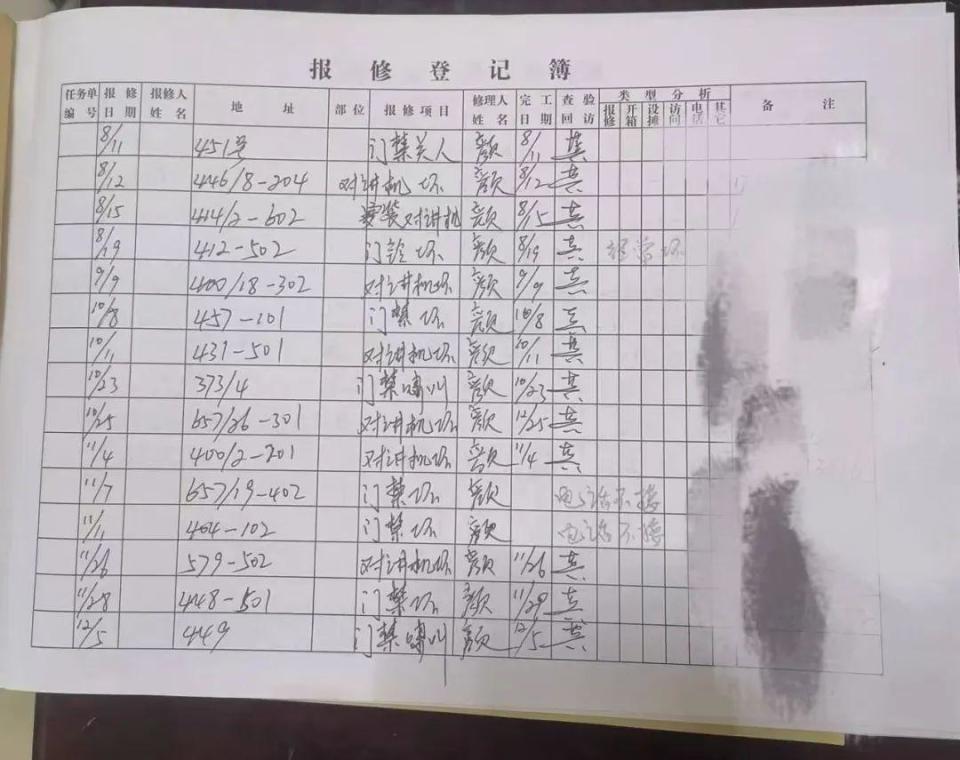 报修登记簿
任务单编号 报修日期 报修人姓名 地址 部位 报修项目 修理人姓名 完工日期 查验回访 类型分析 备注
报修 开箱 设摊 访问 电话 其它
8/11 451号 门禁关人 颜 8/11
8/12 446/8-204 对讲机坏 颜 8/12
8/15 414/2-602 安装对讲机 颜 8/15
8/19 412-502 门铃坏 颜 8/19 经常坏
9/9 400/18-302 对讲机坏 颜 9/9
10/8 457-101 门禁坏 颜 10/8
10/11 431-501 对讲机坏 颜 10/11
10/23 373/4 门禁啸叫 颜 10/23
10/25 657/26-301 对讲机坏 颜 12/25
11/4 400/2-201 对讲机坏 颜 11/4
11/7 657/19-402 门禁坏 颜 电话不接
11/11 404-102 门禁坏 颜 电话不接
11/26 579-502 对讲机坏 颜 11/26
11/28 448-501 门禁坏 颜 11/29
12/5 449 门禁啸叫 颜 12/5